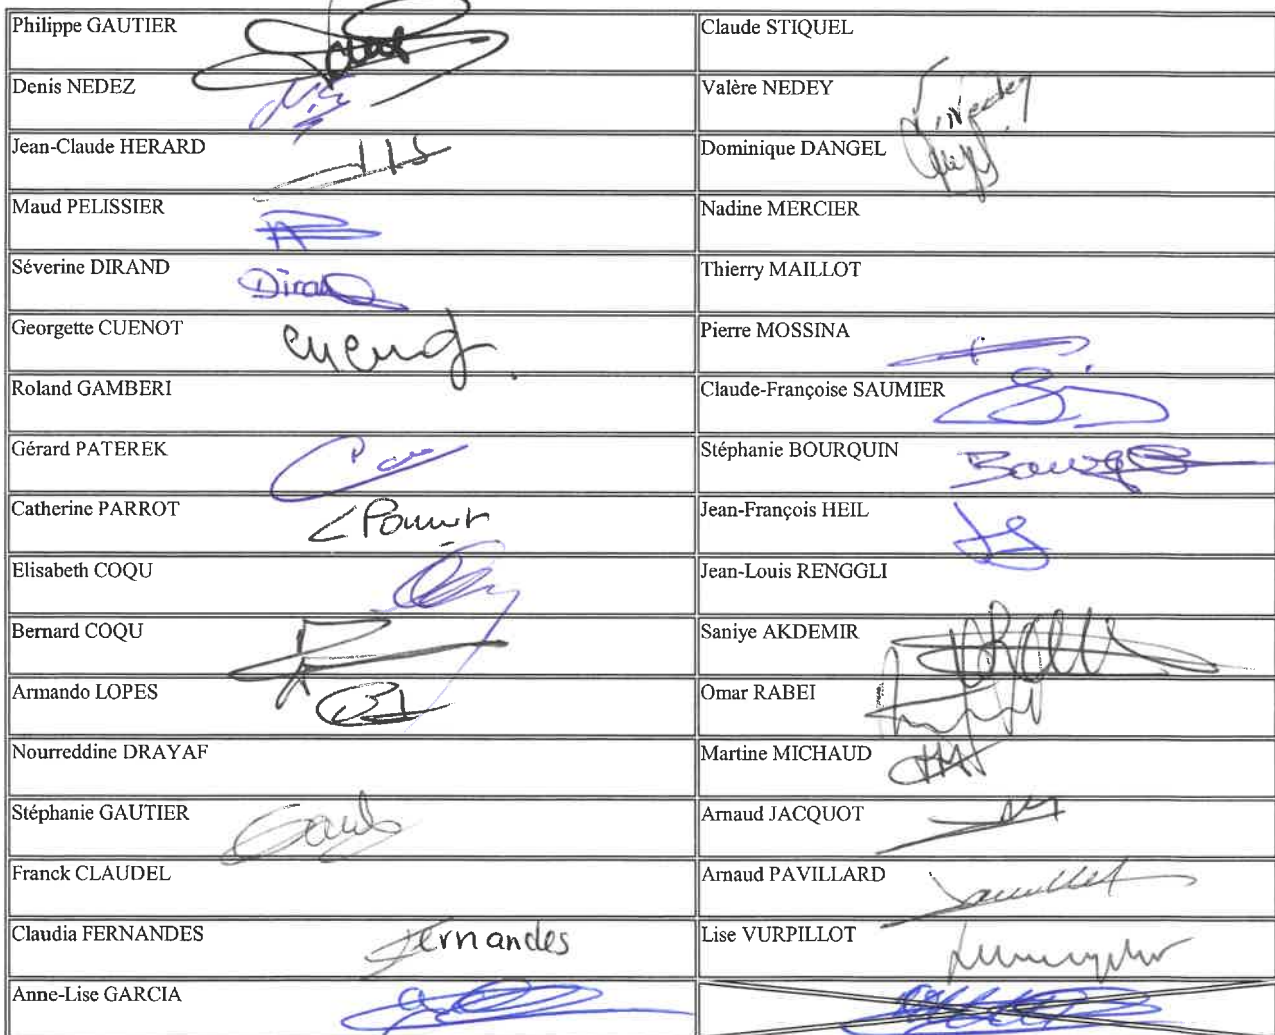 Philippe GAUTIER
Claude STIQUEL
Denis NEDEZ
Valère NEDEY
Jean-Claude HERARD
Dominique DANGEL
Maud PELISSIER
Nadine MERCIER
Séverine DIRAND
Thierry MAILLOT
Georgette CUENOT
Pierre MOSSINA
Roland GAMBERI
Claude-Françoise SAUMIER
Gérard PATEREK
Stéphanie BOURQUIN
Catherine PARROT
Jean-François HEIL
Elisabeth COQU
Jean-Louis RENGGLI
Bernard COQU
Saniye AKDEMIR
Armando LOPES
Omar RABEI
Nourreddine DRAYAF
Martine MICHAUD
Stéphanie GAUTIER
Arnaud JACQUOT
Franck CLAUDEL
Arnaud PAVILLARD
Claudia FERNANDES
Fernandes
Lise VURPILLOT
Anne-Lise GARCIA